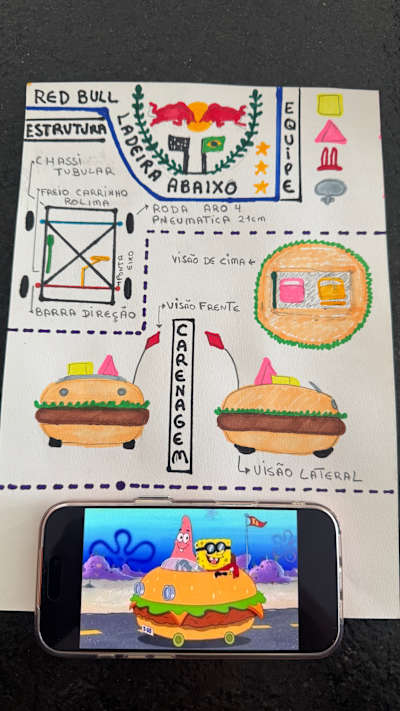 RED BULL
LADEIRA ABAIXO
ESTRUTURA
EQUIPE
CHASSI
TUBULAR
FREIO CARRINHO
ROLIMA
RODA ARO 4
PNEUMATICA 21cm
PONTA
EIXO
BARRA DIREÇÃO
VISÃO DE CIMA
VISÃO FRENTE
CARENAGEM
VISÃO LATERAL